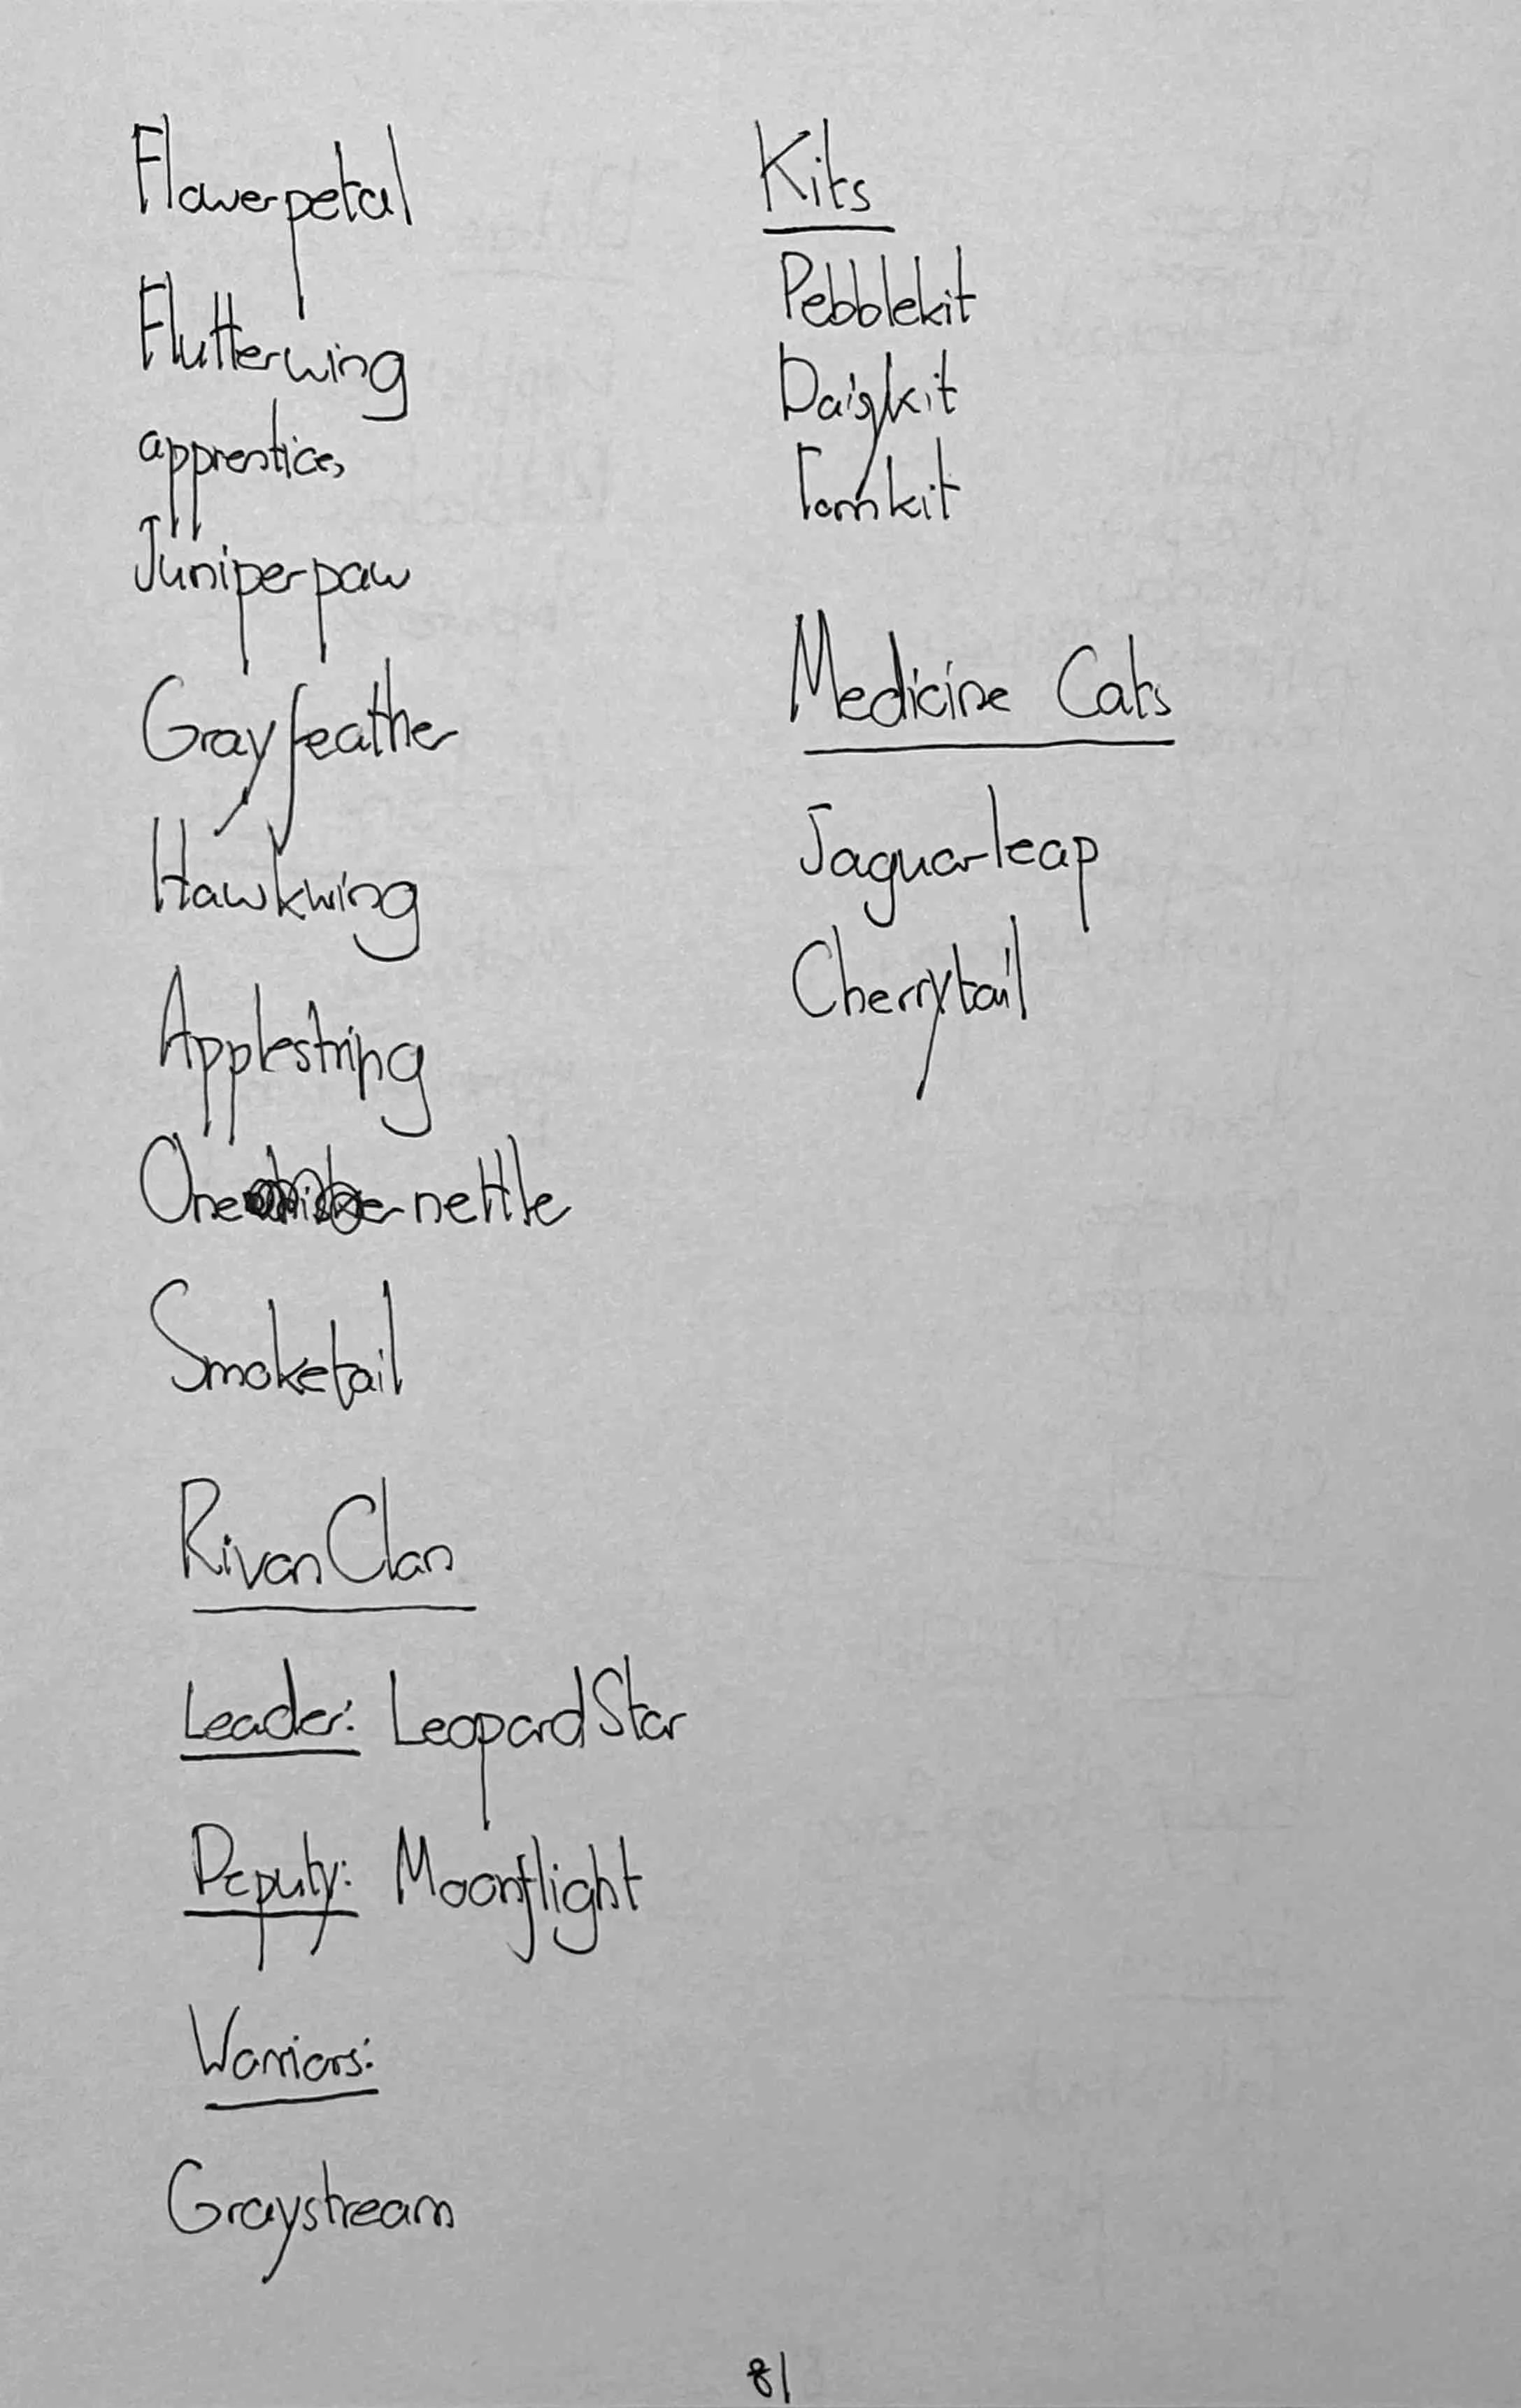 Flowerpetal
Flutterwing
apprentice,
Juniperpaw
Grayfeather
Hawkwing
Applestring
One nettle
Smoketail
RivanClan
Leader: LeopardStar
Deputy: Moonflight
Warriors:
Graystream
Kits
Pebblekit
Daisykit
Medicine Cats
Jaguarleap
Cherrytail
81